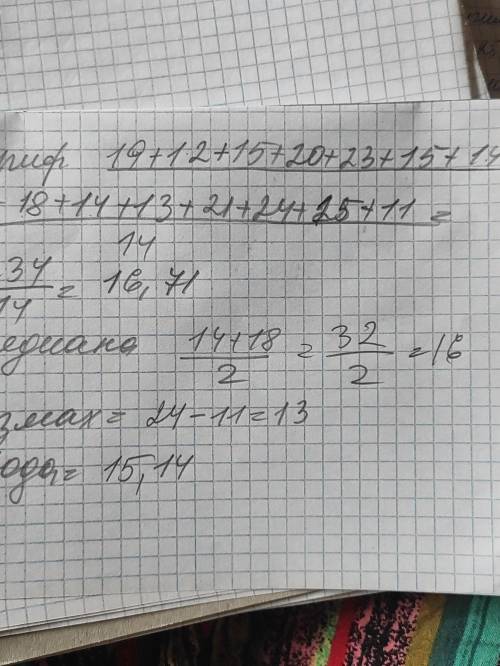 риф. 19+12+15+20+23+15+14
+ 18+14+13+21+24+15+11 =
14
234/14 = 16,71
едиана (14+18)/2 = 32/2 = 16
змах = 24-11=13
ода = 15,14